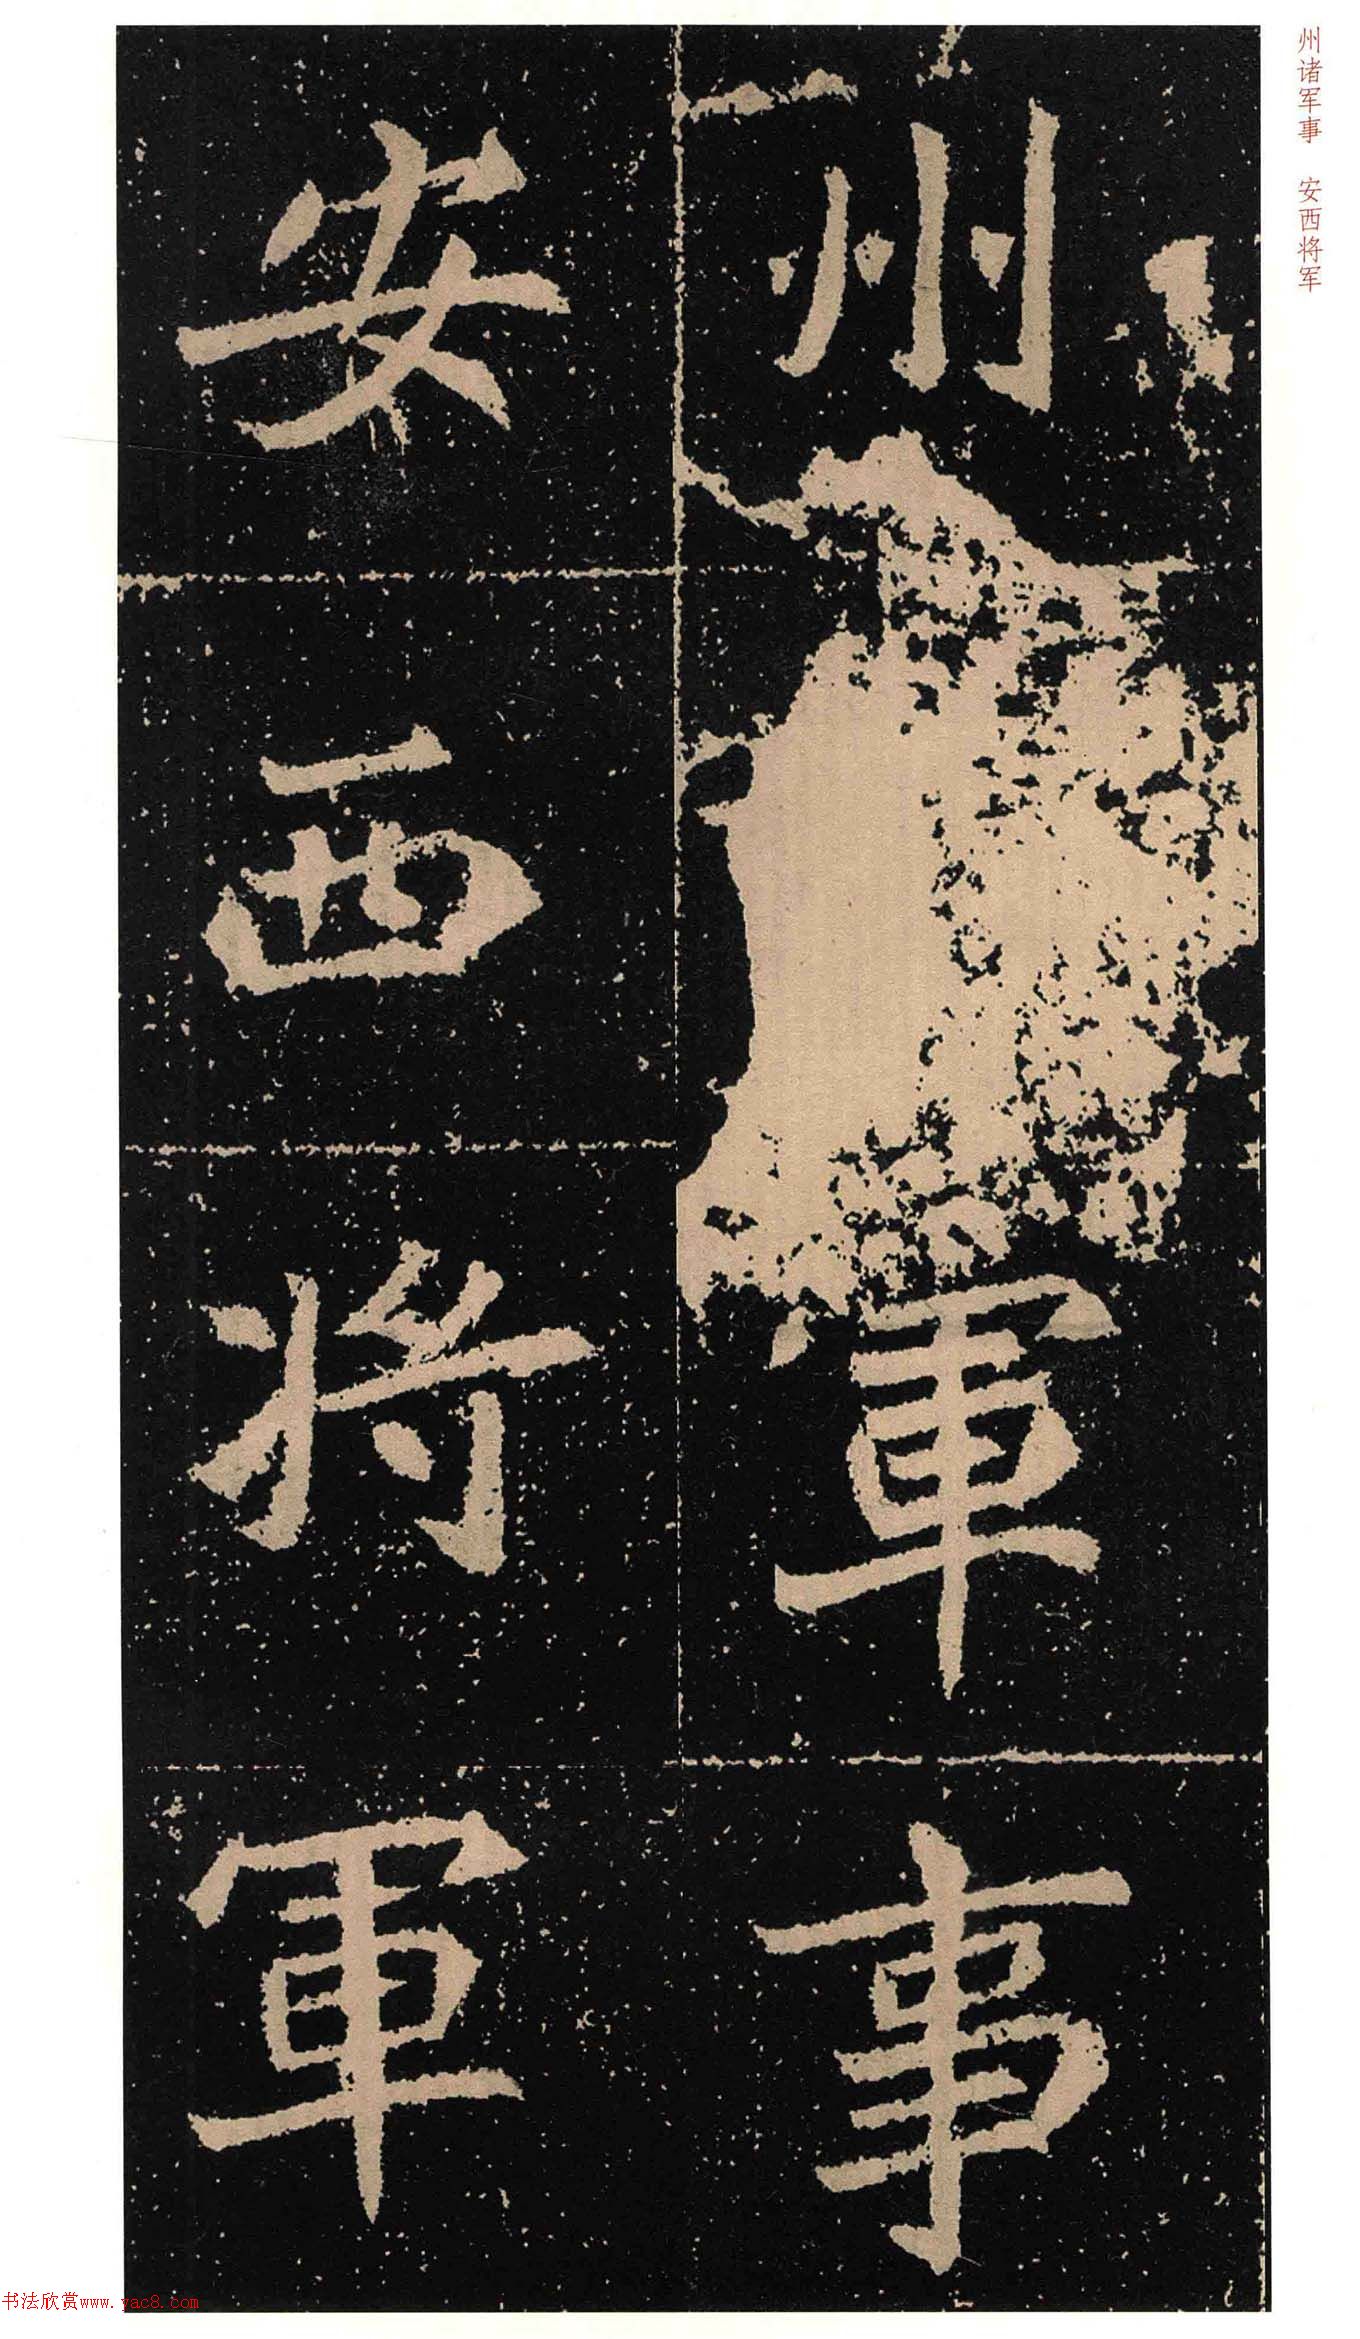 州軍事
安西將軍
州诸军事　安西将军
书法欣赏www.yac8.com